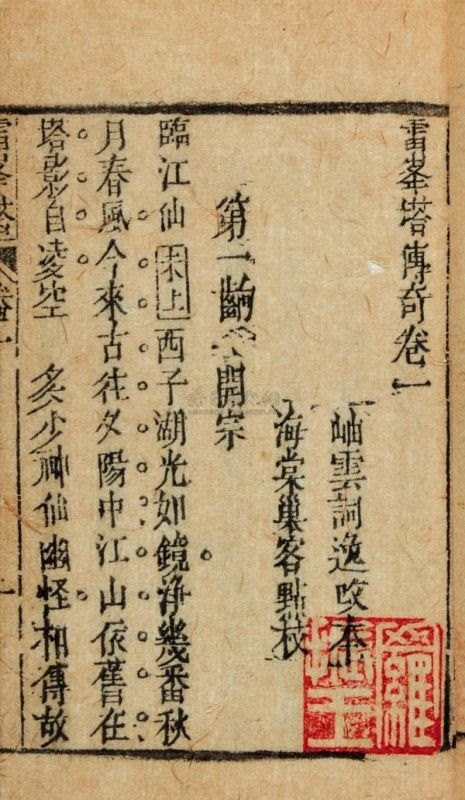 雷峯塔傳奇卷一
岫雲詞逸改本
海棠巢客點校
第一齣 開宗
臨江仙 末上 西子湖光如鏡淨幾番秋
月春風今來古往夕陽中江山依舊在
塔影自凌空 多少神仙幽怪相傳故
雷峯塔 卷一